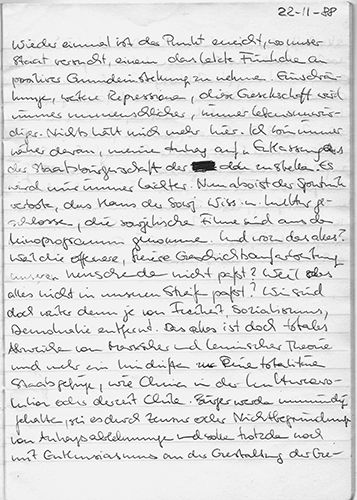 22-11-88
Wieder einmal ist der Punkt erreicht, wo unser
Staat versucht, einem das letzte Fünkchen an
positiver Grundeinstellung zu nehmen. Einschrän-
kungen, weitere Repressionen, diese Gesellschaft wird
immer unmenschlicher, immer lebensunwür-
diger. Nichts hält mich mehr hier. Ich bin immer
näher daran, meinen Antrag auf Entlassung aus
der Staatsbürgerschaft der ddr zu stellen. Es
wird mir immer leichter. Nun also ist der Sputnik
verboten, das Haus der Sowj. Wiss. u. Kultur ge-
schlossen, die sowjetische Filme sind aus dem
Kinoprogramm genommen. Und warum das alles?
Weil die offenere, freiere Geschichtsaufarbeitung
unseren Herrschenden nicht paßt? Weil das
alles nicht in unseren Streifen paßt? Wir sind
doch weiter denn je von Freiheit, Sozialismus,
Demokratie entfernt. Das alles ist doch totales
Abweichen von Marxscher und Leninscher Theorie
und mehr ein Hindriften zu eine totalitäre
Staatsgefüge, wie China in der Kulturrevo-
lution oder derzeit Chile. Bürger werden unmündig
gehalten, sei es durch Zensur oder Nichtbegründung
von Antragsablehnungen und sollen trotzdem noch
mit Enthusiasmus an der Gestaltung der Ge-